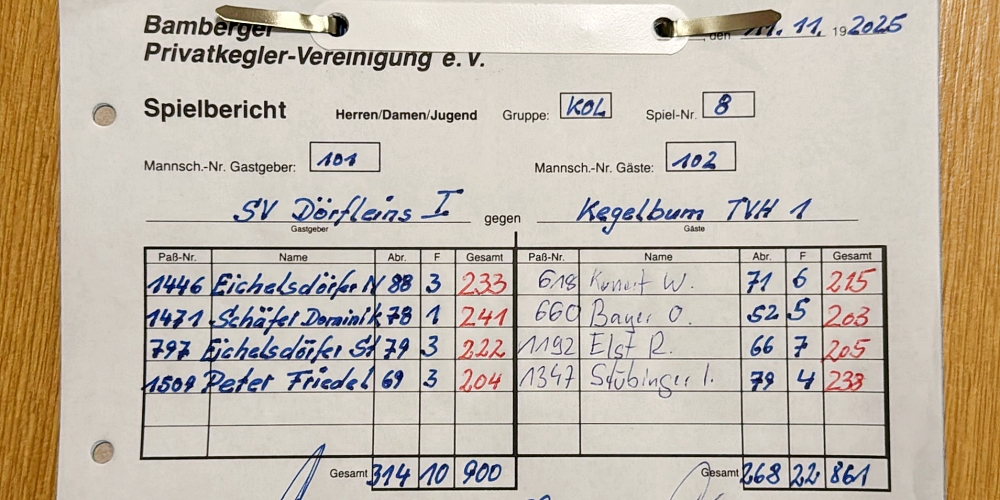 Bamberger
, den 11. 11. 19 2025
Privatkegler-Vereinigung e. V.
Spielbericht Herren/Damen/Jugend Gruppe: KOL Spiel-Nr. 8
Mannsch.-Nr. Gastgeber: 101 Mannsch.-Nr. Gäste: 102
SV Dörfleins I gegen Kegelbum TVH 1
Gastgeber Gäste
Paß-Nr. Name Abr. F Gesamt Paß-Nr. Name Abr. F Gesamt
1446 Eichelsdörfer N 88 3 233 618 W. 71 6 215
1471 Schäfer Dominik 78 1 241 660 Bayer O. 52 5 203
797 Eichelsdörfer St 79 3 222 1192 Elst R. 66 7 205
1509 Peter Friedel 69 3 204 1347 Stübinger I. 79 4 238
Gesamt 314 10 900 Gesamt 268 22 861